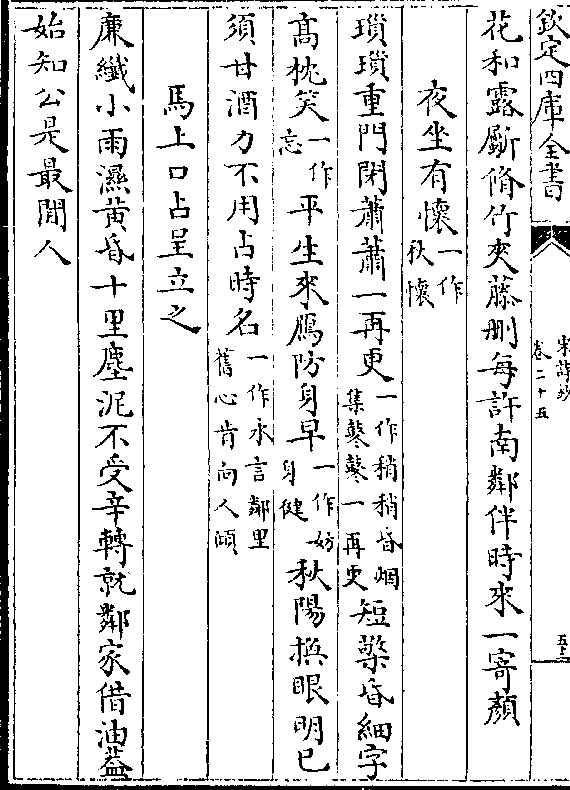 欽定四庫全書
宋詩鈔
卷二十五
花和露斸脩竹夾藤刪每許南鄰伴時來一寄顏
夜坐有懷一作秋懷
瑣瑣重門閉蕭蕭一再更一作稍稍昏烟集鼕鼕一再更短檠昏細字
高枕笑一作忘平生來鴈防身早一作妨身健秋陽換眼明已
須甘酒力不用占時名一作永言鄰里舊心肯向人傾
馬上口占呈立之
廉纖小雨濕黃昏十里塵泥不受辛轉就鄰家借油蓋
始知公是最閒人